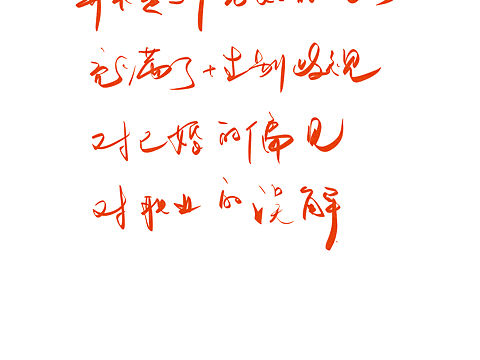 充满了性别歧视
对已婚的偏见
对职业的误解